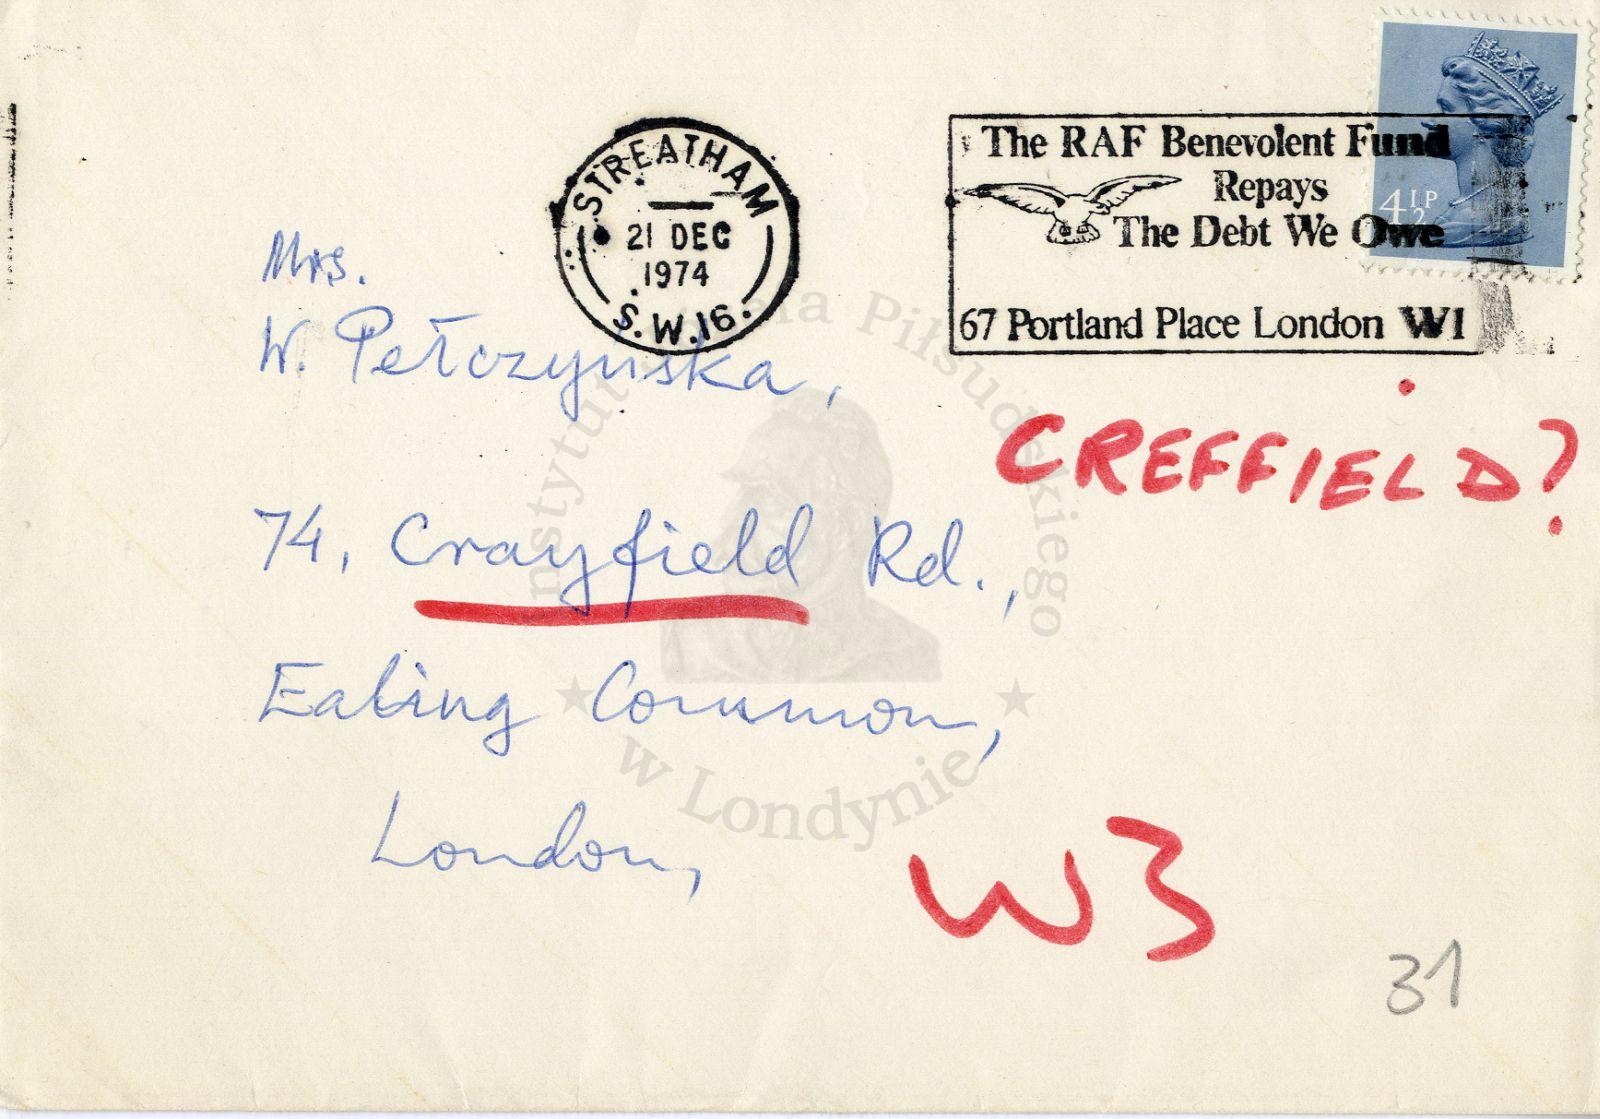 STREATHAM
21 DEC
1974
S.W.16.
The RAF Benevolent Fund
Repays
The Debt We Owe
67 Portland Place London W1
4½P
Mrs.
W. Pełczyńska,
CREFFIELD?
74, Crayfield Rd.,
Ealing Common,
London,
W3
31
Instytut Piłsudskiego
w Londynie